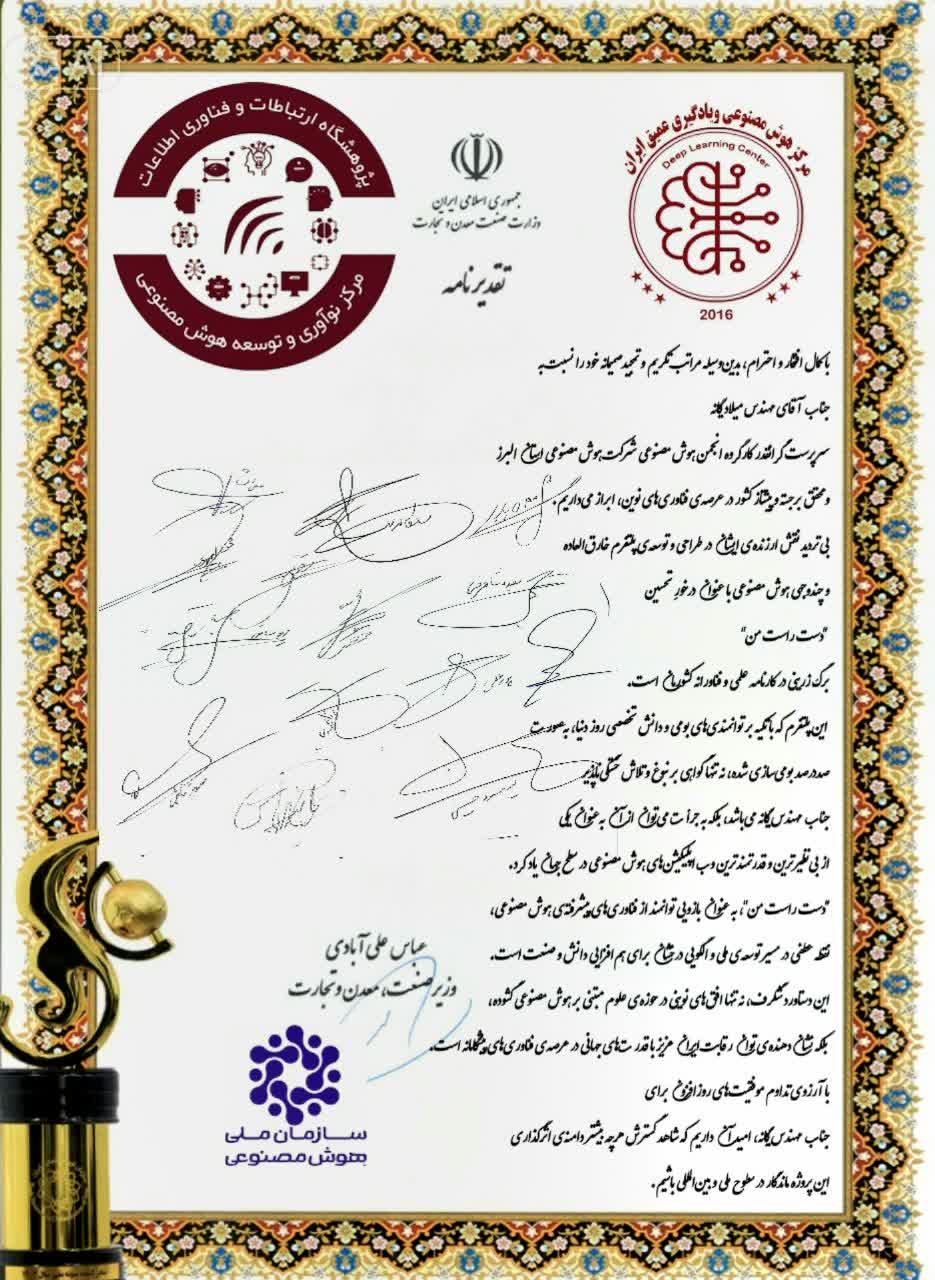 پژوهشگاه ارتباطات و فناوری اطلاعات
مرکز نوآوری و توسعه هوش مصنوعی
جمهوری اسلامی ایران
وزارت صنعت معدن و تجارت
تقدیرنامه
مرکز هوش مصنوعی و یادگیری عمیق ایران
Deep Learning Center
2016
با کمال افتخار و احترام، بدین‌وسیله مراتب تکریم و تمجید صمیمانه خود را نسبت به
جناب آقای مهندس میلاد یگانه
سرپرست گرانقدر کارگروه انجمن هوش مصنوعی شرکت هوش مصنوعی استان البرز
و محقق برجسته و پیشتاز کشور در عرصه‌ی فناوری‌های نوین، ابراز می‌داریم.
بی تردید نقش ارزنده‌ی ایشان در طراحی و توسعه‌ی پلتفرم خارق‌العاده
و چندوجهی هوش مصنوعی با عنوان درخور تحسین
"دست راست من"
برگ زرینی در کارنامه علمی و فناورانه کشورمان است.
این پلتفرم که با تکیه بر توانمندی‌های بومی و دانش تخصصی روز دنیا، به صورت
صددرصد بومی سازی شده، نه تنها گواهی بر نبوغ و تلاش خستگی ناپذیر
جناب مهندس یگانه می‌باشد، بلکه به جرأت می‌توان از آن به عنوان یکی
از بی نظیرترین و قدرتمندترین وب اپلیکیشن‌های هوش مصنوعی در سطح جهان یاد کرد.
"دست راست من"، به عنوان بازویی توانمند از فناوری‌های پیشرفته‌ی هوش مصنوعی،
نقطه عطفی در مسیر توسعه‌ی ملی و الگویی درخشان برای هم افزایی دانش و صنعت است.
این دستاورد شگرف، نه تنها افق‌های نوینی در حوزه‌ی علوم مبتنی بر هوش مصنوعی گشوده،
بلکه نشان دهنده‌ی توان رقابت ایران عزیز با قدرت‌های جهانی در عرصه‌ی فناوری‌های پیشگامانه است.
با آرزوی تداوم موفقیت‌های روز افزون برای
جناب مهندس یگانه، امید آن داریم که شاهد گسترش هرچه بیشتر دامنه‌ی اثرگذاری
این پروژه ماندگار در سطوح ملی و بین‌المللی باشیم.
عباس علی آبادی
وزیر صنعت، معدن و تجارت
سازمان ملی
هوش مصنوعی